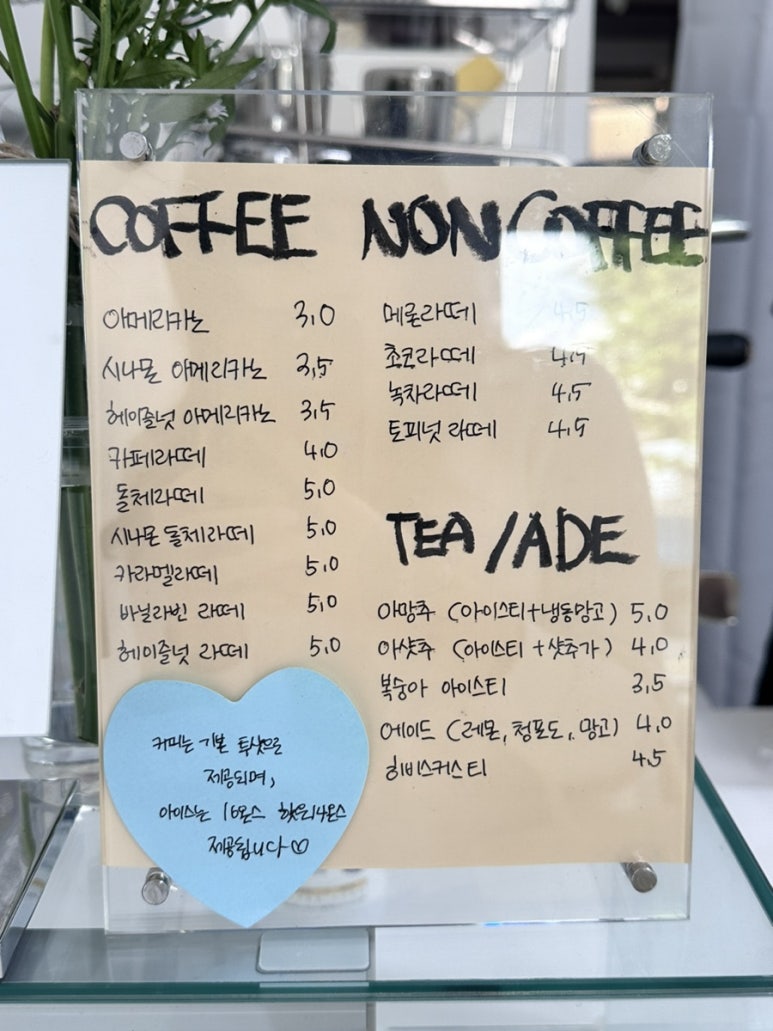 COFFEE
아메리카노 3,0
시나몬 아메리카노 3,5
헤이즐넛 아메리카노 3,5
카페라떼 4,0
돌체라떼 5,0
시나몬 돌체라떼 5,0
카라멜라떼 5,0
바닐라빈 라떼 5,0
헤이즐넛 라떼 5,0
NON COFFEE
메론라떼 4,5
초코라떼 4,5
녹차라떼 4,5
토피넛 라떼 4,5
TEA/ADE
아망추 (아이스티+냉동망고) 5,0
아샷추 (아이스티+샷추가) 4,0
복숭아 아이스티 3,5
에이드 (레몬, 청포도, 망고) 4,0
히비스커스티 4,5
커피는 기본 투샷으로
제공되며,
아이스는 16온스 핫은 14온스
제공됩니다♡